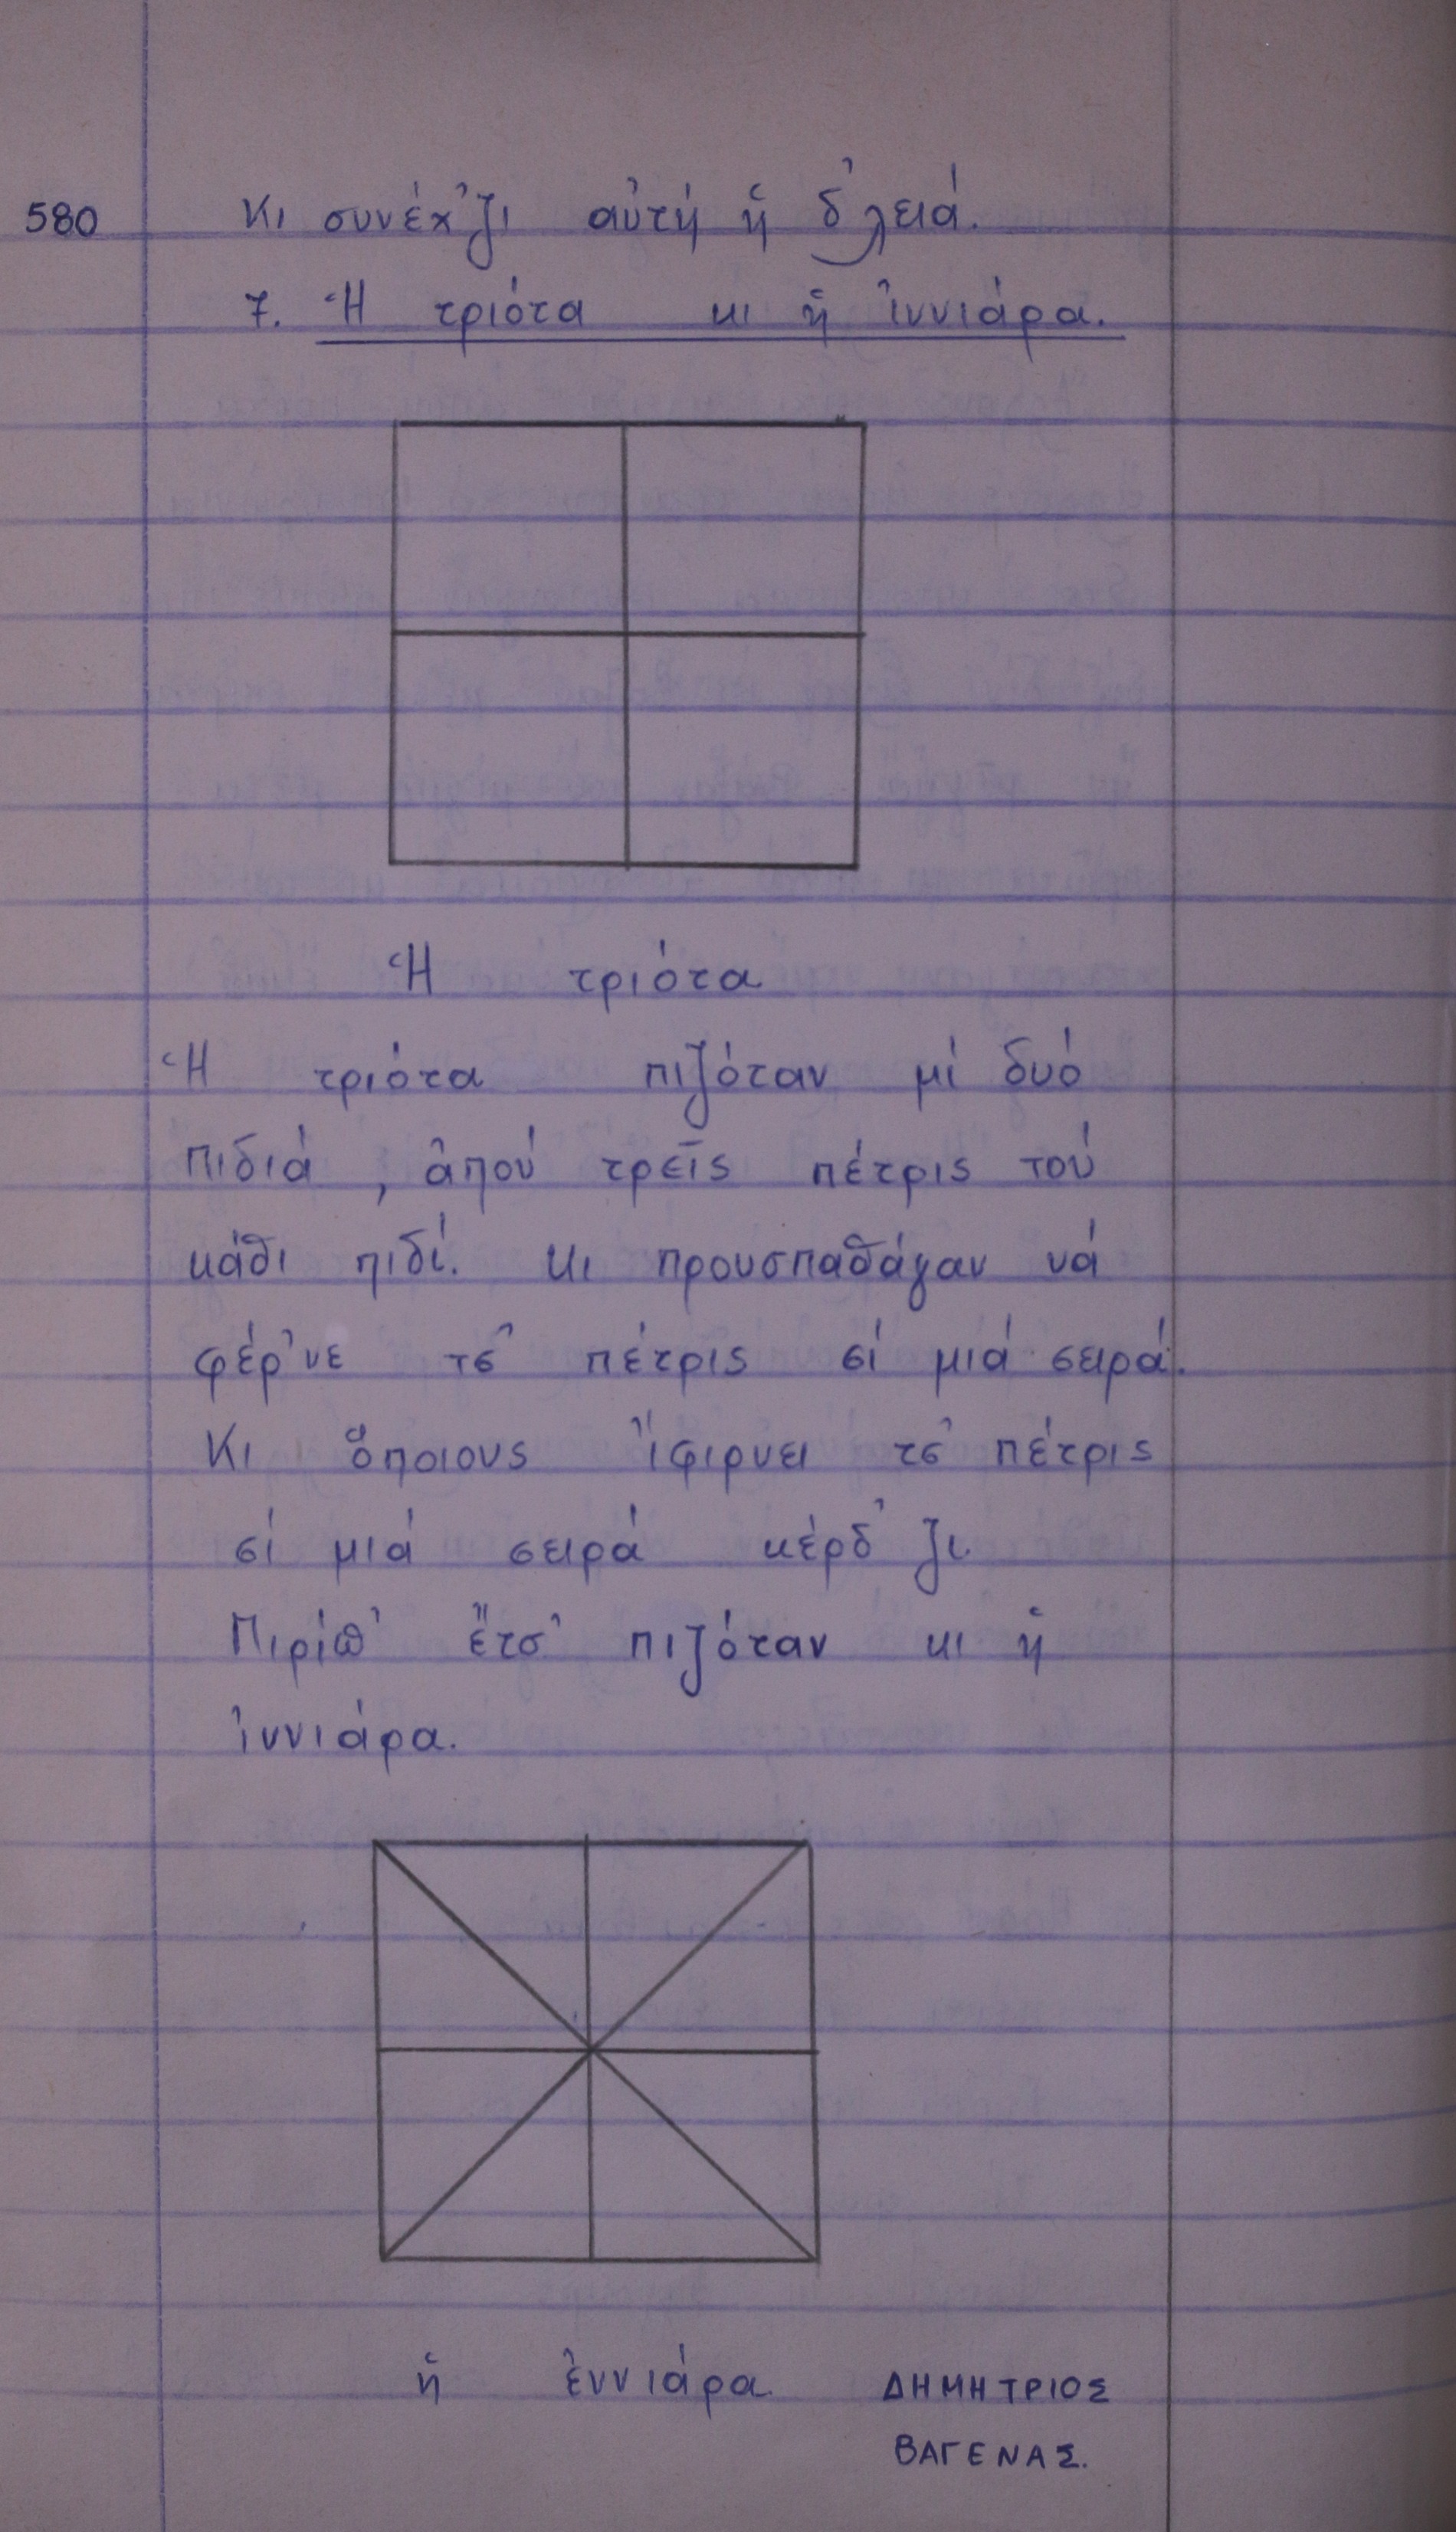 580 κι συνέχ'ζι αὐτή ἡ δ'λειά.
7. Ἡ τριότα κι ἡ ἰννιάρα.
Ἡ τριότα
Ἡ τριότα πιζόταν μί δυό
πιδιά, ἀπού τρεῖς πέτρις τού
κάθι πιδί. κι προυσπαθάγαν νά
φέρ'νε τσ' πέτρις σί μιά σειρά.
Κι ὅποιους ἴφιρνει τσ' πέτρις
σί μιά σειρά κέρδ'ζι.
Πιρίπ' ἔτσ' πιζόταν κι ἡ
ἰννιάρα.
ἡ ἐννιάρα ΔΗΜΗΤΡΙΟΣ
ΒΑΓΕΝΑΣ.